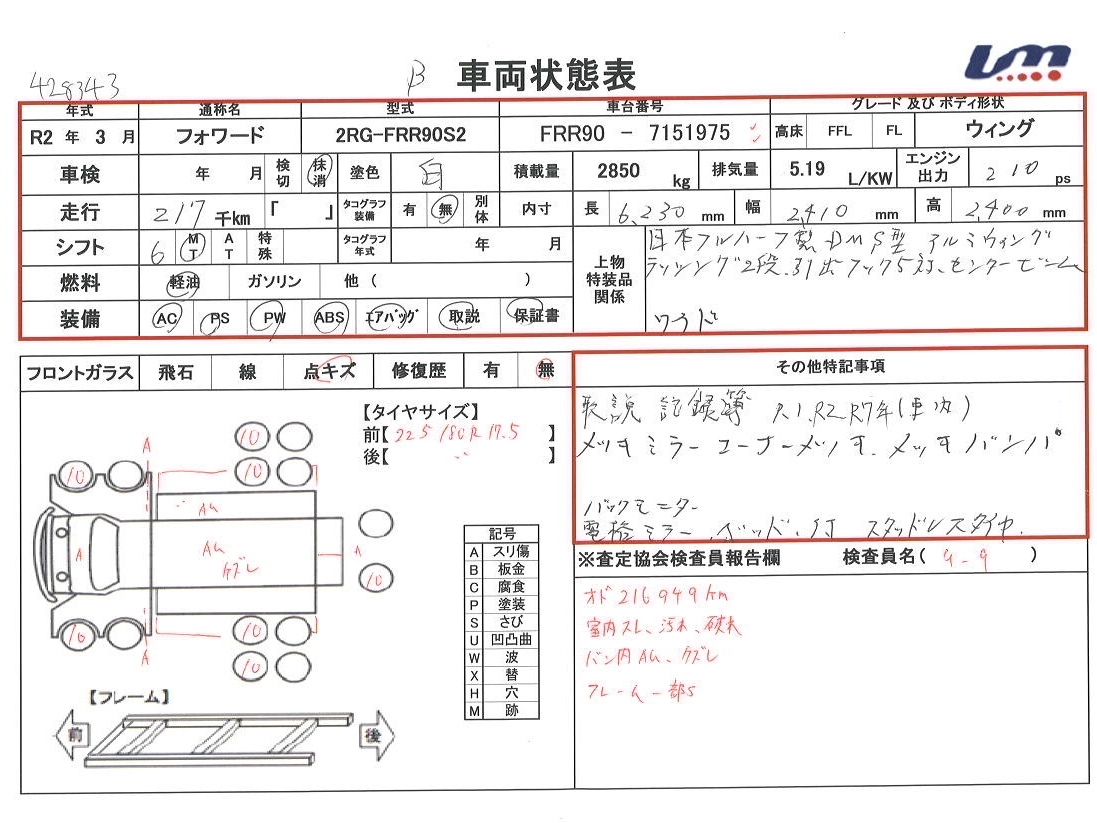 428343
β 車両状態表 UM
年式 通称名 型式 車台番号 グレード 及び ボディ形状
R2 年 3 月 フォワード 2RG-FRR90S2 FRR90 - 7151975 高床 FFL FL ウィング
車検 年 月 検切 抹消 塗色 白 積載量 2850 kg 排気量 5.19 L/KW エンジン出力 210 ps
走行 217 千km 「 」 タコグラフ装備 有 無 別体 内寸 長 6,230 mm 幅 2,410 mm 高 2,400 mm
シフト 6 MT AT 特殊 タコグラフ年式 年 月
燃料 軽油 ガソリン 他 ( )
装備 AC PS PW ABS エアバッグ 取説 保証書
上物特装品関係
日本フルハーフ製 DMS型 アルミウィング
ラッシング2段.引出フック5対.センタービーム
ワイド
フロントガラス 飛石 線 点キズ 修復歴 有 無
その他特記事項
取説 記録簿 R1.R2 R7年(車内)
メッキミラーコーナーメッキ.メッキバンパ
バックモニター
電格ミラー.ベッド.付 スタッドレスタイヤ.
【タイヤサイズ】
前【 225/80R17.5 】
後【 〃 】
A
10
10
10
〃 AU
A
AU
ケズレ
A
10
10
10
A
10
記号
A スリ傷
B 板金
C 腐食
P 塗装
S さび
U 凹凸曲
W 波
X 替
H 穴
M 跡
【フレーム】
前 後
※査定協会検査員報告欄 検査員名( 4-9 )
オド 216949km
室内スレ、汚れ、破れ
バン内AU、ケズレ
フレーム一部S